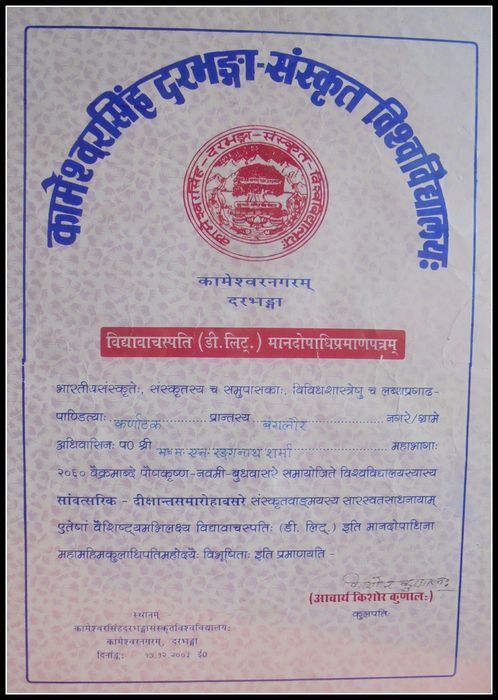 कामेश्वरसिंह दरभङ्गा-संस्कृत विश्वविद्यालयः
कामेश्वरसिंह-दरभङ्गा-संस्कृत-विश्वविद्यालयः
कामेश्वरनगरम्
दरभङ्गा
विद्यावाचस्पति (डी.लिट्.) मानदोपाधिप्रमाणपत्रम्
भारतीयसंस्कृतेः, संस्कृतस्य च समुपासकाः, विविधशास्त्रेषु च लब्धप्रगाढ-
पाण्डित्याः कर्णाटक प्रान्तस्य बंगलौर नगरे/ग्रामे
अधिवासिनः प० श्री एन. रङ्गनाथ शर्मा महाभागाः
२०६० वैक्रमाब्दे पौषकृष्ण-नवमी-बुधवासरे समायोजिते विश्वविद्यालयस्यास्य
सांवत्सरिक - दीक्षान्तसमारोहावसरे संस्कृतवाङ्मयस्य सारस्वतसाधनायाम्
एतेषां वैशिष्ट्यमभिलक्ष्य विद्यावाचस्पतिः (डी. लिट्.) इति मानदोपाधिना
महामहिमकुलाधिपतिमहोदयैः विभूषिताः इति प्रमाणयति -
किशोर कुणाल
(आचार्य किशोर कुणालः)
कुलपतिः
स्थानम्
कामेश्वरसिंहदरभङ्गासंस्कृतविश्वविद्यालयः
कामेश्वरनगरम्, दरभङ्गा
दिनाङ्कः १७.१२.२००३ ई०